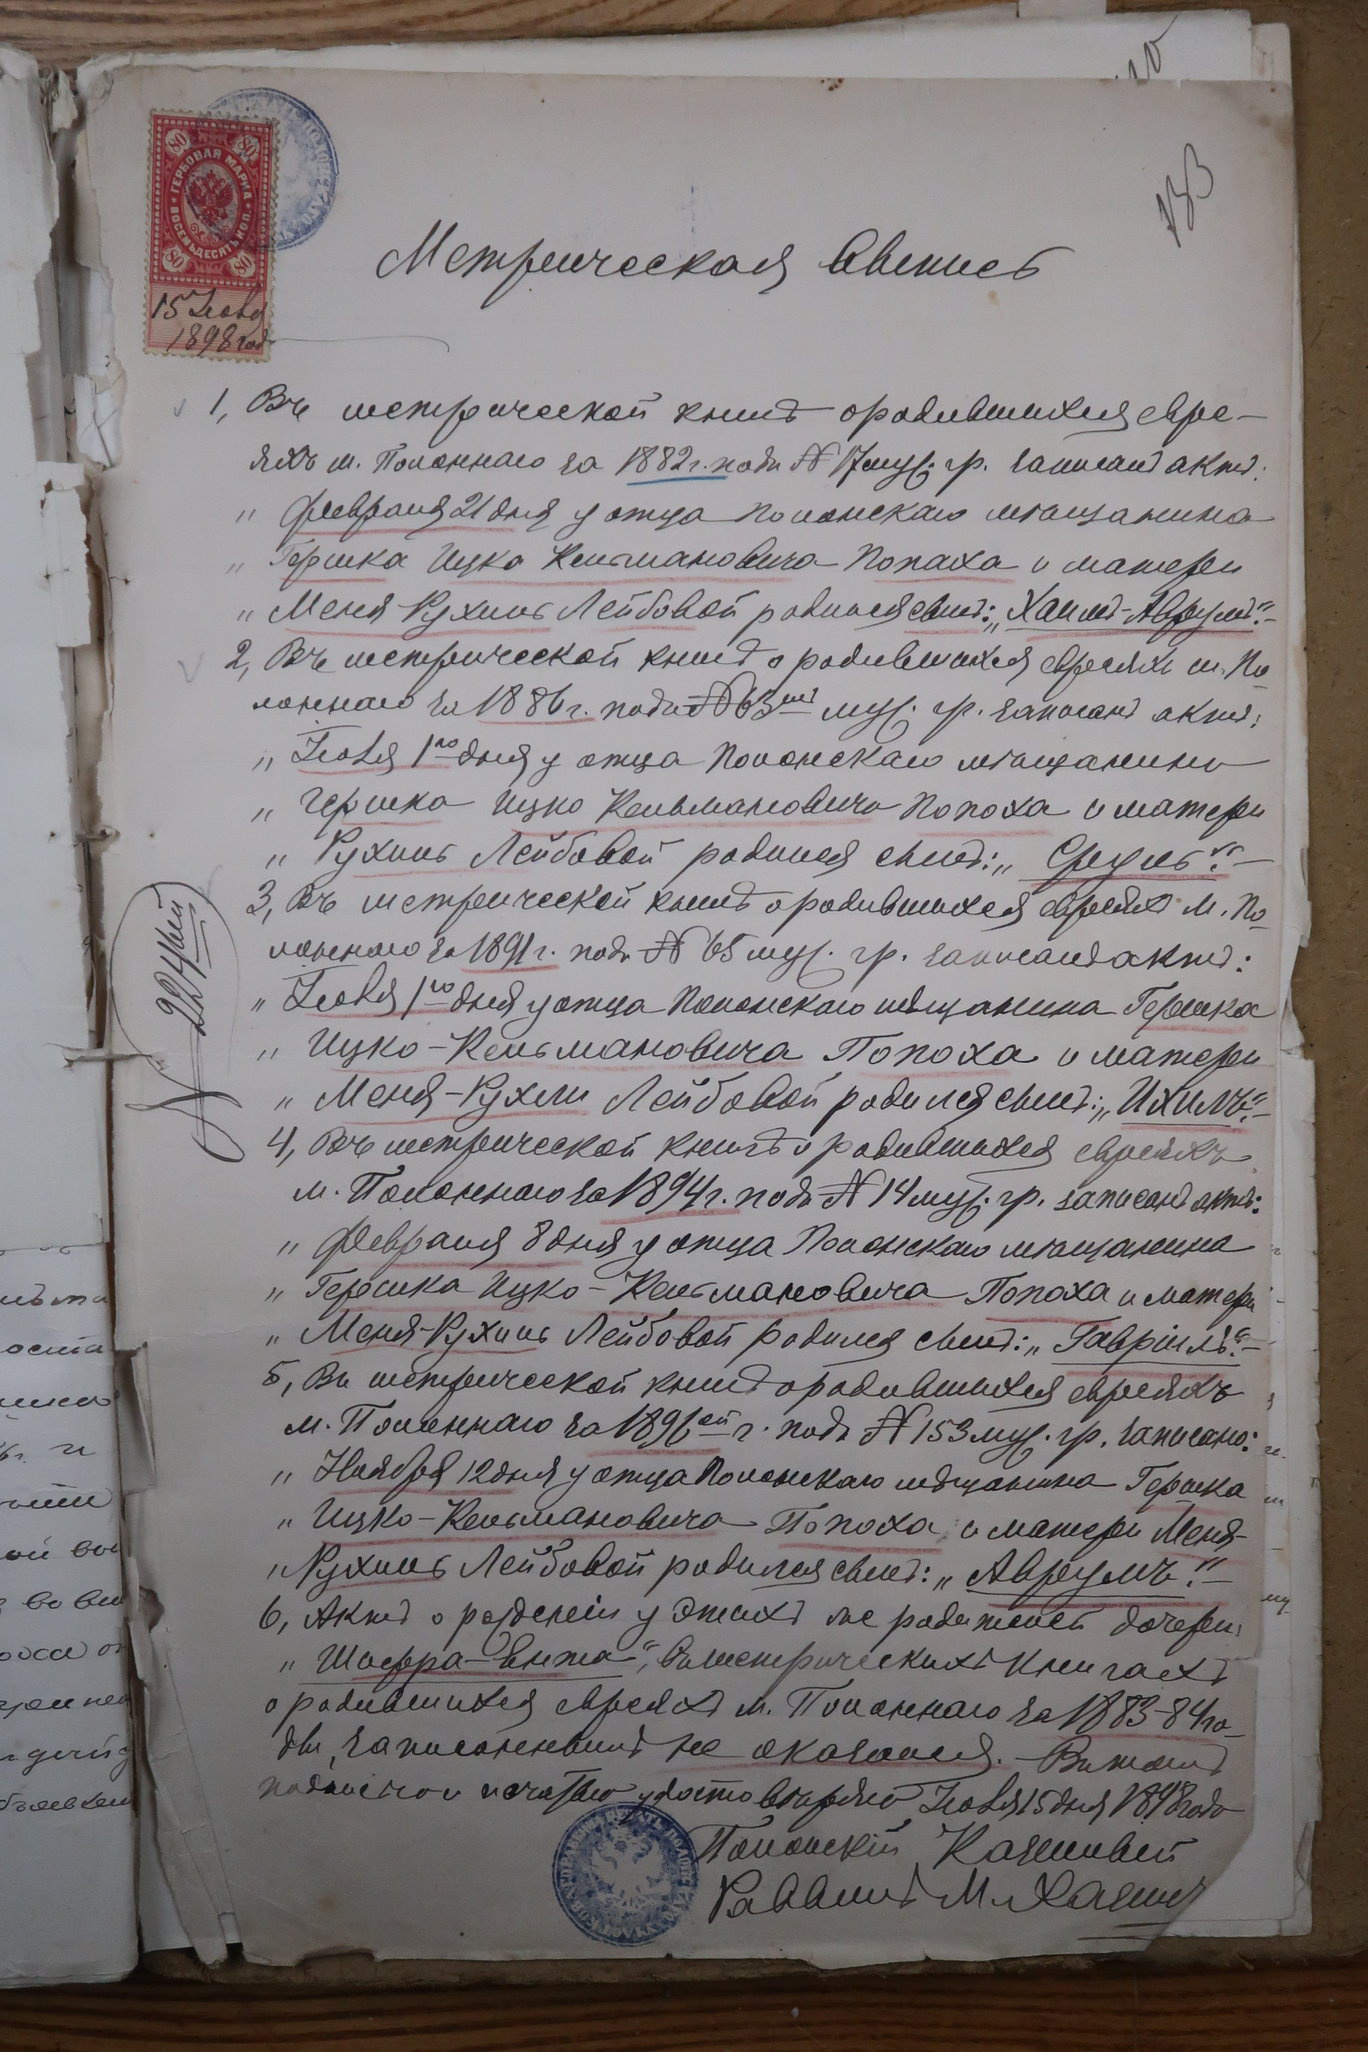 133
ГЕРБОВАЯ МАРКА
ВОСЕМЬДЕСЯТЬ КОП.
80 80
80 80
15 Іюля
1898 год
Метрическая Выпись
1, Въ метрической книгѣ о родившихся евре-
яхъ м. Полоннаго за 1882 г. подъ № 17 муж. гр. записанъ актъ:
„ Февраля 21 дня у отца Полонскаго мѣщанина
„ Гершка Ицко Кельмановича Попаха и матери
„ Меня-Рухиль Лейбовой родился сынъ: „Хаимъ-Аврумъ“.-
2, Въ метрической книгѣ о родившихся евреяхъ м. По
лоннаго за 1886 г. подъ № 63мъ муж. гр. записанъ актъ:
„ Іюля 1го дня у отца Полонскаго мѣщанина
„ Гершка Ицко Кельмановича Попоха и матери
„ Рухиль Лейбовой родился сынъ: „Сруль“.-
3, Въ метрической книгѣ о родившихся евреяхъ м. По-
лоннаго за 1891 г. подъ № 65 муж. гр. записанъ актъ:
„ Іюля 1го дня у отца Полонскаго мѣщанина Гершка
„ Ицко-Кельмановича Попоха и матери
„ Меня-Рухли Лейбовой родился сынъ: „Ихилъ“.-
4, Въ метрической книгѣ о родившихся евреяхъ
м. Полоннаго за 1894 г. подъ № 14 муж. гр. записанъ актъ:
„ Февраля 8 дня у отца Полонскаго мѣщанина
„ Гершка Ицко-Кельмановича Попоха и матери
„ Меня-Рухиль Лейбовой родился сынъ: „Гавріилъ“.-
5, Въ метрической книгѣ о родившихся евреяхъ
м. Полоннаго за 1896ой г. подъ № 153 муж. гр. записано:
„ Ноября 12 дня у отца Полонскаго мѣщанина Гершка
„ Ицко-Кельмановича Попоха и матери Меня-
„ Рухиль Лейбовой родился сынъ: „Аврумъ“.-
6, Актъ о рожденіи у этихъ же родителей дочери:
„ Шифра-Ента“, въ метрическихъ книгахъ
о родившихся евреяхъ м. Полоннаго за 1883-84 го-
ды, записаннымъ не оказался. - Въ томъ
подписью и печатью удостовѣряю Іюля 15 дня 1898 года
Полонскій Казенный
Раввинъ М.